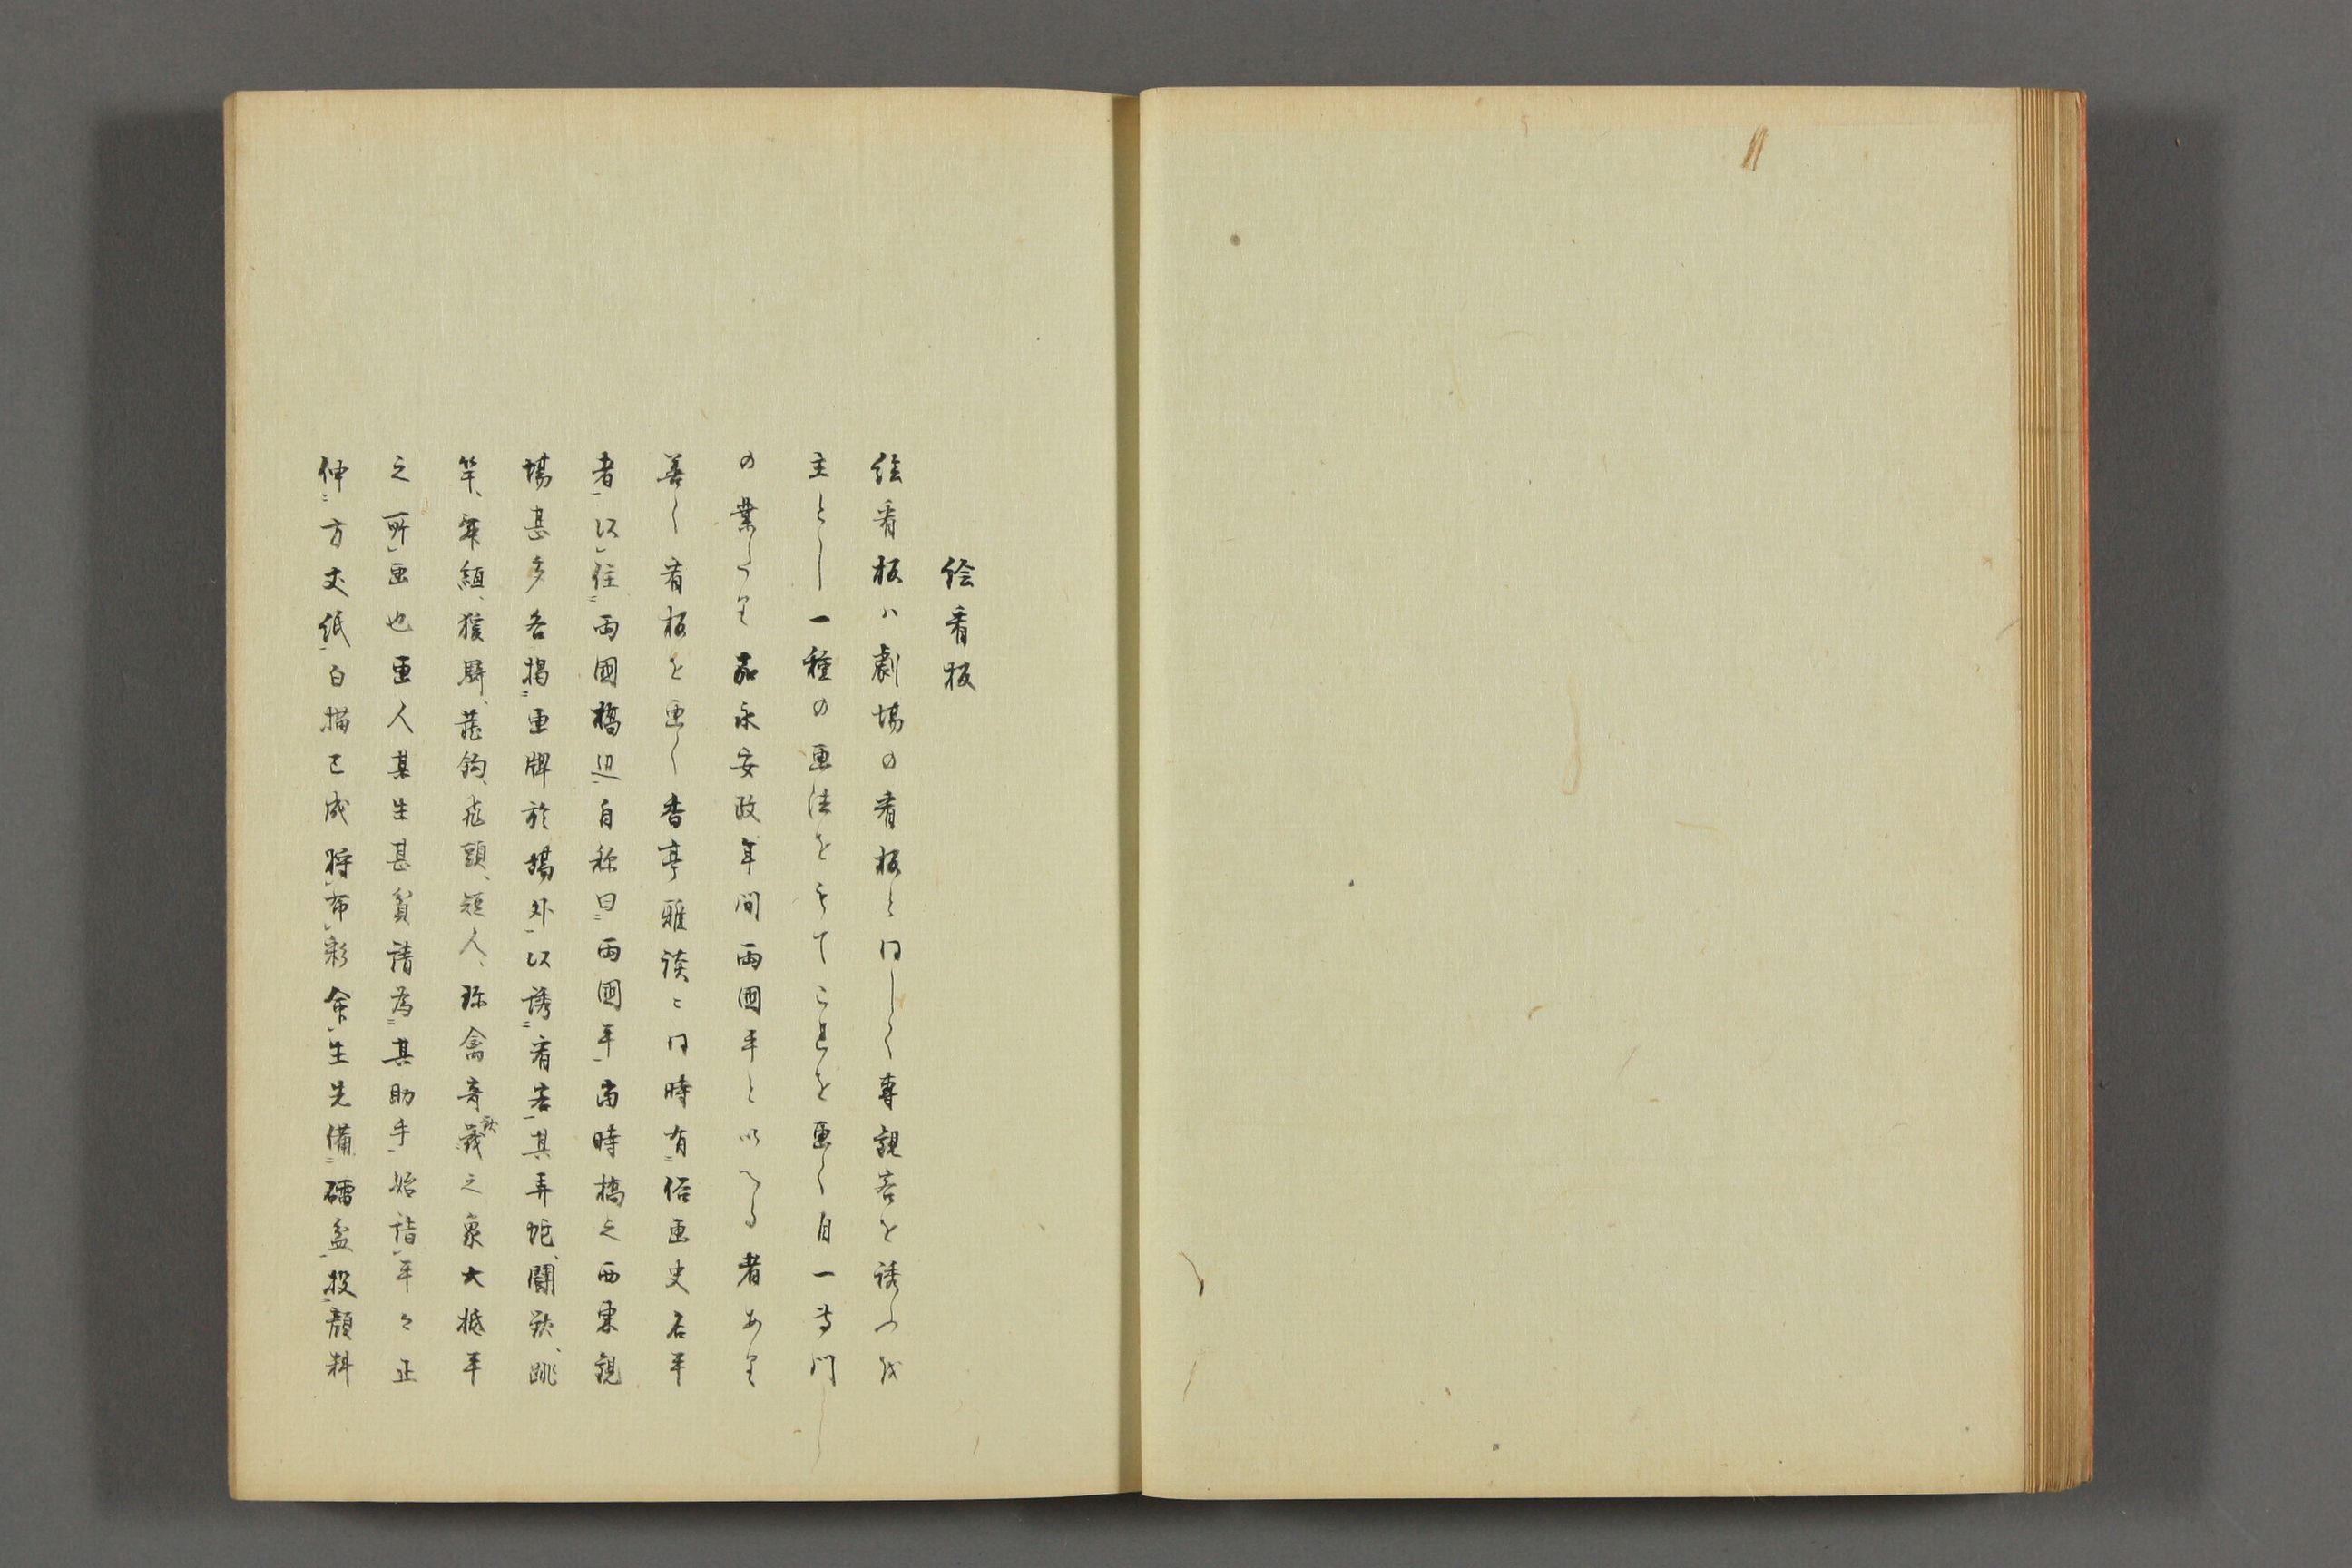 絵看板
絵看板ハ劇場の看板と同しく専観客を誘ふを
主とし一種の画法をもてこれを画く自一専門
の業たり嘉永安政年間両国平といへる者あり
善く看板を画く香亭雅談ニ同時有俗画史名平
者以住両國橋辺自称曰両國平当時橋之西東観
場甚多各掲画牌於場外以誘看客其弄蛇、闘獣、跳
竿、索絙、猴騎、飛頭、短人、珎禽奇獣之象大抵平
之所画也画人某生甚貧請為其助手始詣平々正
伸方丈紙白描已成将布彩余生先備磠盆投顔料